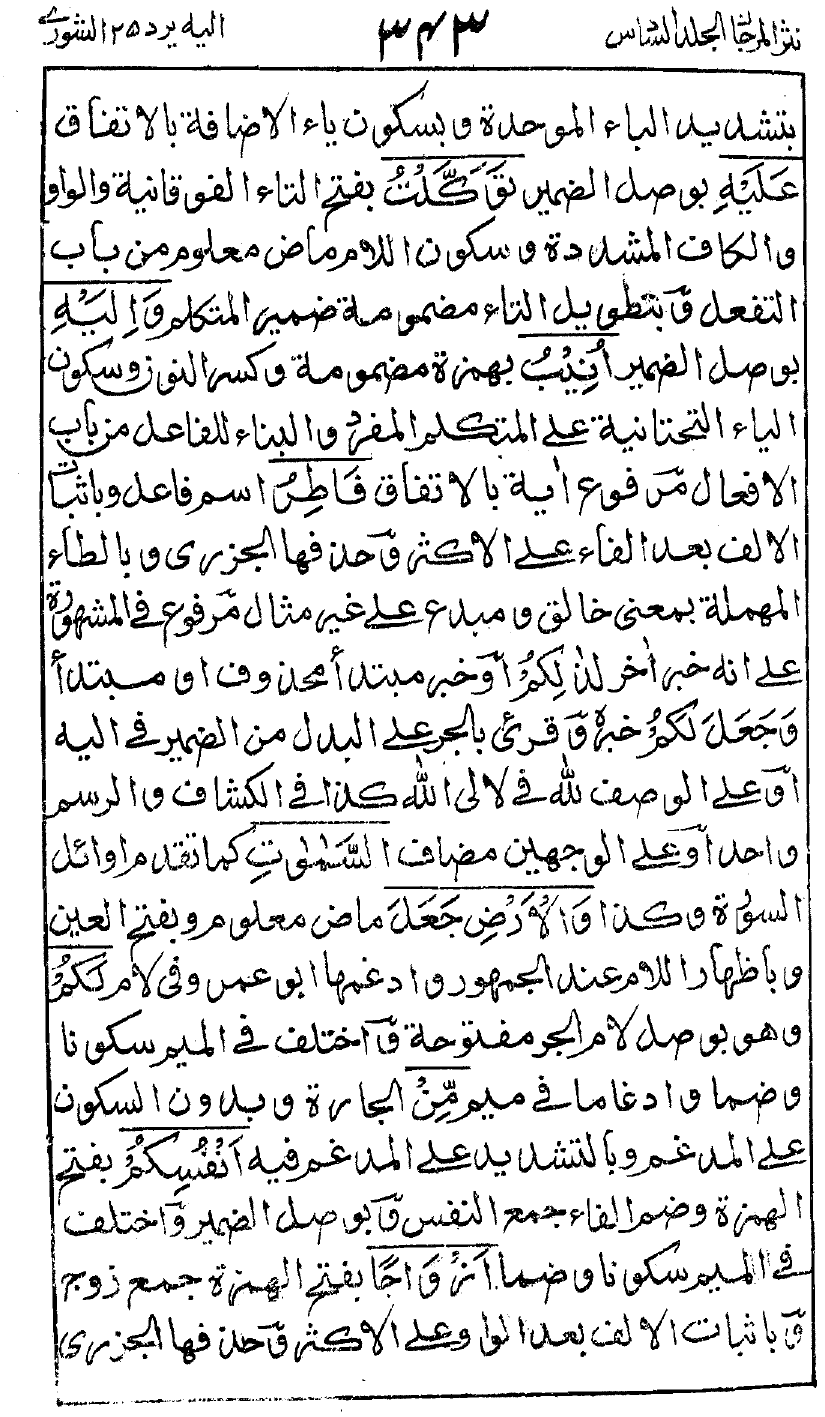 نثر المرجان الجلد السادس ٣٤٣ اليه يرد ٢٥ الشورى
بتشديد الباء الموحدة وبسكون ياء الاضافة بالاتفاق
عَلَيْهِ بوصل الضمير تَوَكَّلْتُ بفتح التاء الفوقانية والواو
والكاف المشددة وسكون اللام ماض معلوم من باب
التفعل وبتطويل التاء مضمومة ضمير المتكلم وَاِلَيْهِ
بوصل الضمير اُنِيْبُ بهمزة مضمومة وكسر النون وسكون
الياء التحتانية على المتكلم المفرد والبناء للفاعل من باب
الافعال مرفوع اٰية بالاتفاق فَاطِرُ اسم فاعل وباثبات
الالف بعد الفاء على الاكثر وحذفها الجزرى وبالطاء
المهملة بمعنى خالق ومبدع على غير مثال مرفوع فى المشهورة
على انه خبر اٰخر لذٰلِكُمُ او خبر مبتدأ محذوف او مبتدأ
وَجَعَلَ لَكُمُ خبره وقرئ بالجر على البدل من الضمير فى اليه
او على الوصف لله فى لالى الله كذا فى الكشاف والرسم
واحد او على الوجهين مضاف السَّمٰوٰتِ كما تقدم اوائل
السورة وكذا وَالْاَرْضِ جَعَلَ ماض معلوم وبفتح العين
وباظهار اللام عند الجمهور وادغمها ابو عمرو فى لام لَكُمُ
وهو بوصل لام الجر مفتوحة واختلف فى الميم سكونا
وضما وادغاما فى ميم مِّنْ الجارة وبدون السكون
على المدغم وبالتشديد على المدغم فيه اَنْفُسِكُمْ بفتح
الهمزة وضم الفاء جمع النفس وبوصل الضمير واختلف
فى الميم سكونا وضما اَزْوَاجًا بفتح الهمزة جمع زوج
وباثبات الالف بعد الواو على الاكثر وحذفها الجزرى